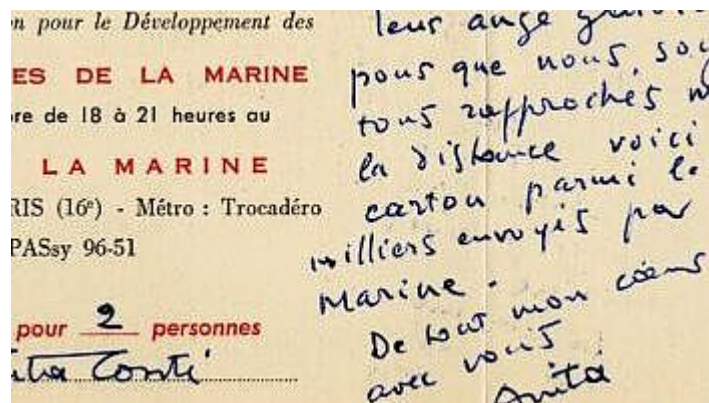 on pour le Développement des
ES DE LA MARINE
re de 18 à 21 heures au
LA MARINE
RIS (16e) - Métro : Trocadéro
PASsy 96-51
pour 2 personnes
Conti
leur ange
pour que nous, soy
tous rapprochés
la distance voici
carton parmi le
milliers envoyés par
Marine.
De tout mon cœur
avec vous
Anita